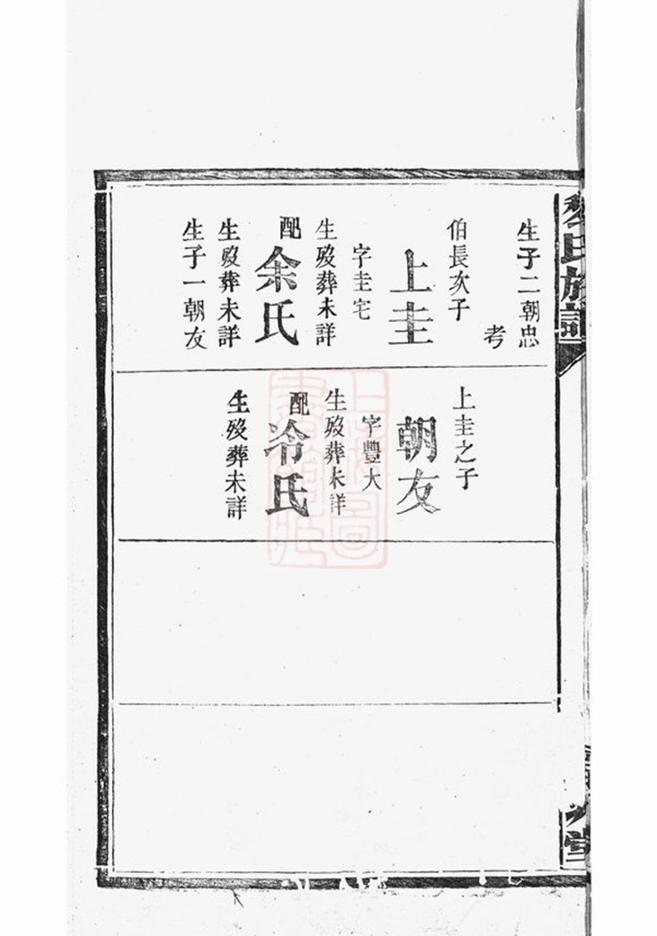 生子二朝忠
考
伯長次子
上圭
字圭宅
生歿葬未詳
配
余氏
生歿葬未詳
生子一朝友
上圭之子
朝友
字豐大
生歿葬未詳
配
冷氏
生歿葬未詳
氏族譜
堂